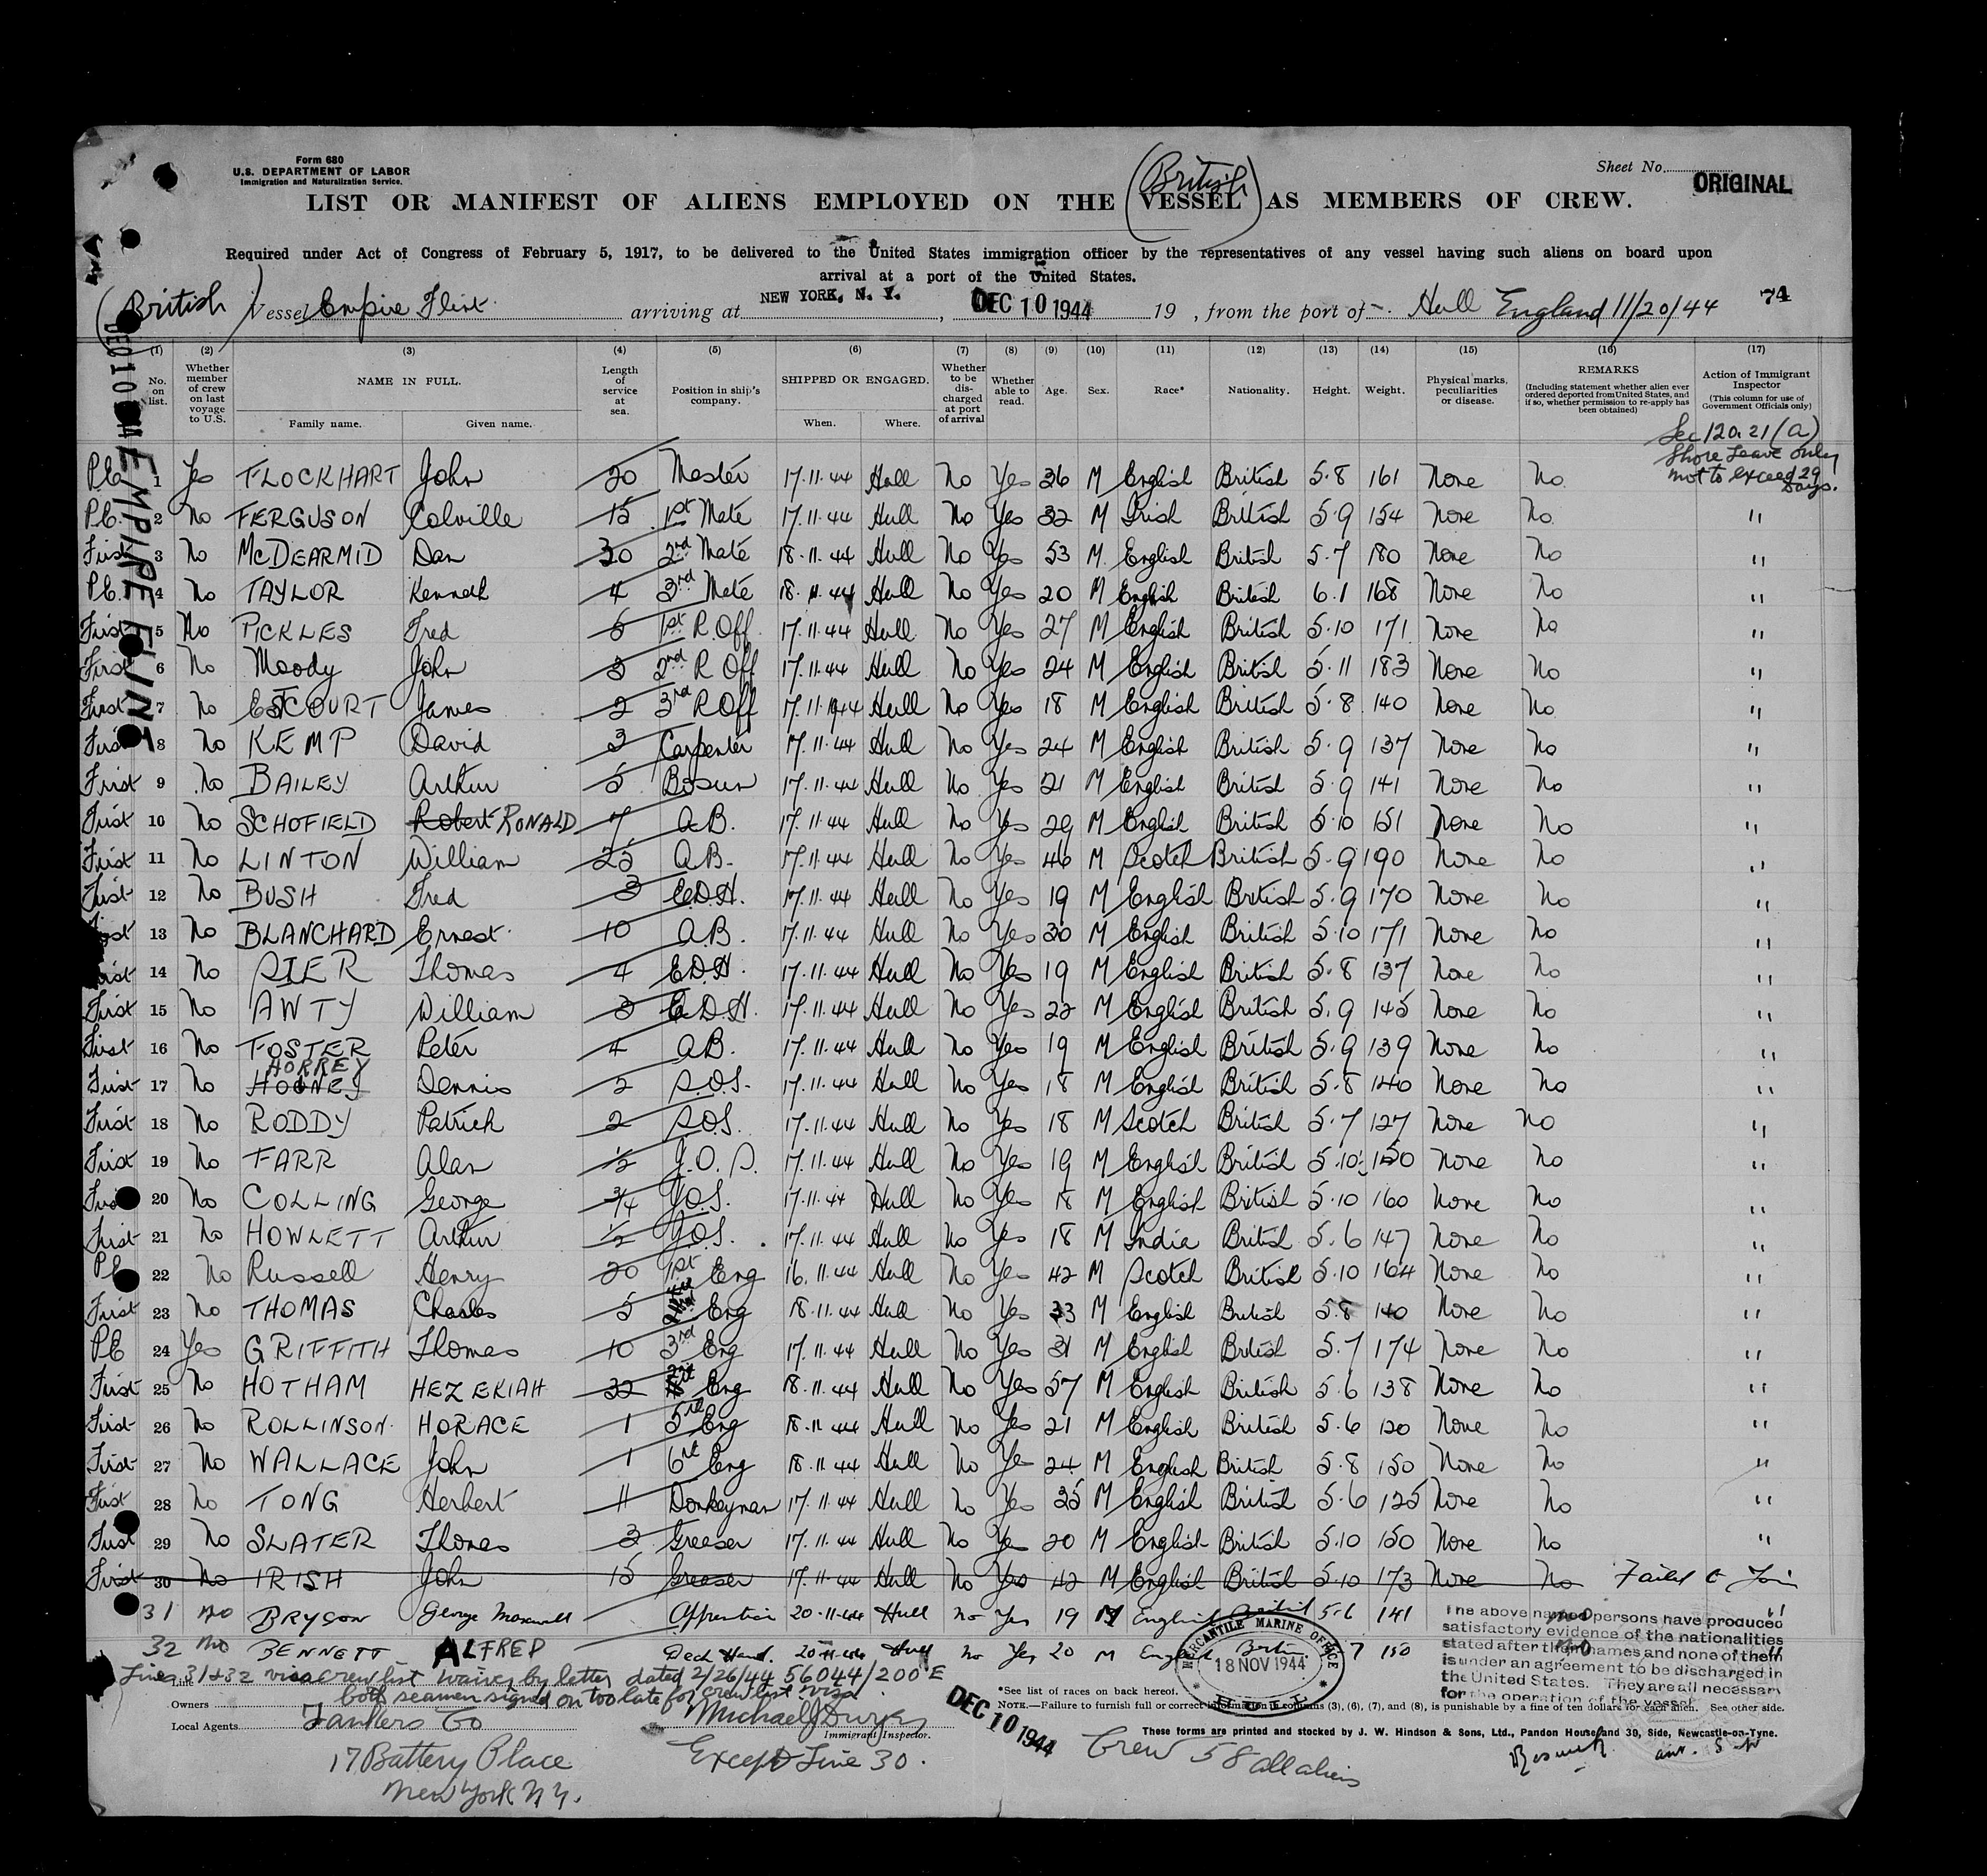 Form 680
U.S. DEPARTMENT OF LABOR
Immigration and Naturalization Service.
Sheet No.
ORIGINAL
(British)
LIST OR MANIFEST OF ALIENS EMPLOYED ON THE VESSEL AS MEMBERS OF CREW.
Required under Act of Congress of February 5, 1917, to be delivered to the United States immigration officer by the representatives of any vessel having such aliens on board upon
arrival at a port of the United States.
(British) Vessel Empire Flint arriving at NEW YORK, N. Y. , DEC 10 1944 19 , from the port of Hull England 11/20/44
74
DEC 10 1944
EMPIRE FLINT
(1) (2) (3) (4) (5) (6) (7) (8) (9) (10) (11) (12) (13) (14) (15) (16) (17)
No. on list. Whether member of crew on last voyage to U.S. NAME IN FULL. Family name. Given name. Length of service at sea. Position in ship's company. SHIPPED OR ENGAGED. When. Where. Whether to be discharged at port of arrival Whether able to read. Age. Sex. Race* Nationality. Height. Weight. Physical marks, peculiarities or disease. REMARKS (Including statement whether alien ever ordered deported from United States, and if so, whether permission to re-apply has been obtained) Action of Immigrant Inspector (This column for use of Government Officials only)
Sec 120.21 (a)
Shore Leave only
not to exceed 29 Days.
P.E. 1 Yes FLOCKHART John 20 Master 17.11.44 Hull No Yes 36 M English British 5.8 161 None No
P.E. 2 No FERGUSON Colville 15 1st Mate 17.11.44 Hull No Yes 32 M Irish British 5.9 154 None No "
First 3 No McDEARMID Dan 30 2nd Mate 18.11.44 Hull No Yes 53 M English British 5.7 180 None No "
P.E. 4 No TAYLOR Kenneth 4 3rd Mate 18.11.44 Hull No Yes 20 M English British 6.1 168 None No "
First 5 No PICKLES Fred 5 1st R.Off. 17.11.44 Hull No Yes 27 M English British 5.10 171 None No "
First 6 No Moody John 3 2nd R Off 17.11.44 Hull No Yes 24 M English British 5.11 183 None No "
First 7 No ESTCOURT James 2 3rd R Off 17.11.1944 Hull No Yes 18 M English British 5.8 140 None No "
First 8 No KEMP David 3 Carpenter 17.11.44 Hull No Yes 24 M English British 5.9 137 None No "
First 9 No BAILEY Arthur 5 Bosun 17.11.44 Hull No Yes 21 M English British 5.9 141 None No "
First 10 No SCHOFIELD Robert RONALD 7 A.B. 17.11.44 Hull No Yes 29 M English British 5.10 151 None No "
First 11 No LINTON William 25 A.B. 17.11.44 Hull No Yes 46 M Scotch British 5.9 190 None No "
First 12 No BUSH Fred 3 E.D.H. 17.11.44 Hull No Yes 19 M English British 5.9 170 None No "
First 13 No BLANCHARD Ernest 10 A.B. 17.11.44 Hull No Yes 30 M English British 5.10 171 None No "
First 14 No PIER Thomas 4 E.D.H. 17.11.44 Hull No Yes 19 M English British 5.8 137 None No "
First 15 No AWTY William 3 E.D.H. 17.11.44 Hull No Yes 22 M English British 5.9 145 None No "
First 16 No FOSTER Peter 4 A.B. 17.11.44 Hull No Yes 19 M English British 5.9 139 None No "
First 17 No HORREY Dennis 2 S.O.S. 17.11.44 Hull No Yes 18 M English British 5.8 140 None No "
First 18 No RODDY Patrick 2 S.O.S. 17.11.44 Hull No Yes 18 M Scotch British 5.7 127 None No "
First 19 No FARR Alan 1/2 J.O.S. 17.11.44 Hull No Yes 19 M English British 5.10 150 None No "
First 20 No COLLING George 3/4 J.O.S. 17.11.44 Hull No Yes 18 M English British 5.10 160 None No "
First 21 No HOWLETT Arthur 1/2 J.O.S. 17.11.44 Hull No Yes 18 M India British 5.6 147 None No "
PE 22 No Russell Henry 20 1st Eng 16.11.44 Hull No Yes 42 M Scotch British 5.10 164 None No "
First 23 No THOMAS Charles 5 Eng 18.11.44 Hull No Yes 23 M English British 5.8 140 None No "
PE 24 Yes GRIFFITH Thomas 10 3rd Eng 17.11.44 Hull No Yes 31 M English British 5.7 174 None No "
First 25 No HOTHAM HEZEKIAH 32 2nd Eng 18.11.44 Hull No Yes 57 M English British 5.6 138 None No "
First 26 No ROLLINSON HORACE 1 5th Eng 18.11.44 Hull No Yes 21 M English British 5.6 120 None No "
First 27 No WALLACE John 1 6th Eng 18.11.44 Hull No Yes 24 M English British 5.8 150 None No "
First 28 No TONG Herbert 11 Donkeyman 17.11.44 Hull No Yes 35 M English British 5.6 125 None No "
First 29 No SLATER Thomas 3 Greaser 17.11.44 Hull No Yes 20 M English British 5.10 150 None No "
First 30 No IRISH John 15 Greaser 17.11.44 Hull No Yes 42 M English British 5.10 173 None No Failed to Join
31 No BRYSON George Maxwell Apprentice 20-11-44 Hull No Yes 19 M English British 5.6 141 no "
32 No BENNETT ALFRED Deck Hand. 20-11-44 Hull No Yes 20 M English British 7 150 no "
The above named persons have produced
satisfactory evidence of the nationalities
stated after their names and none of them
is under an agreement to be discharged in
the United States. They are all necessary
for the operation of the vessel
MERCANTILE MARINE OFFICE
18 NOV 1944
HULL
Lines 31 & 32 visa crew list waiver by letter dated 2/26/44 56044/200 E
both seamen signed on too late for crew list visa
Line
Owners
Local Agents Tankers Co
17 Battery Place
New York N.Y.
Immigrant Inspector.
Except Line 30.
DEC 10 1944
*See list of races on back hereof.
NOTE.—Failure to furnish full or correct information in columns (3), (6), (7), and (8), is punishable by a fine of ten dollars for each alien. See other side.
These forms are printed and stocked by J. W. Hindson & Sons, Ltd., Pandon House and 39, Side, Newcastle-on-Tyne.
Crew 58 all aliens